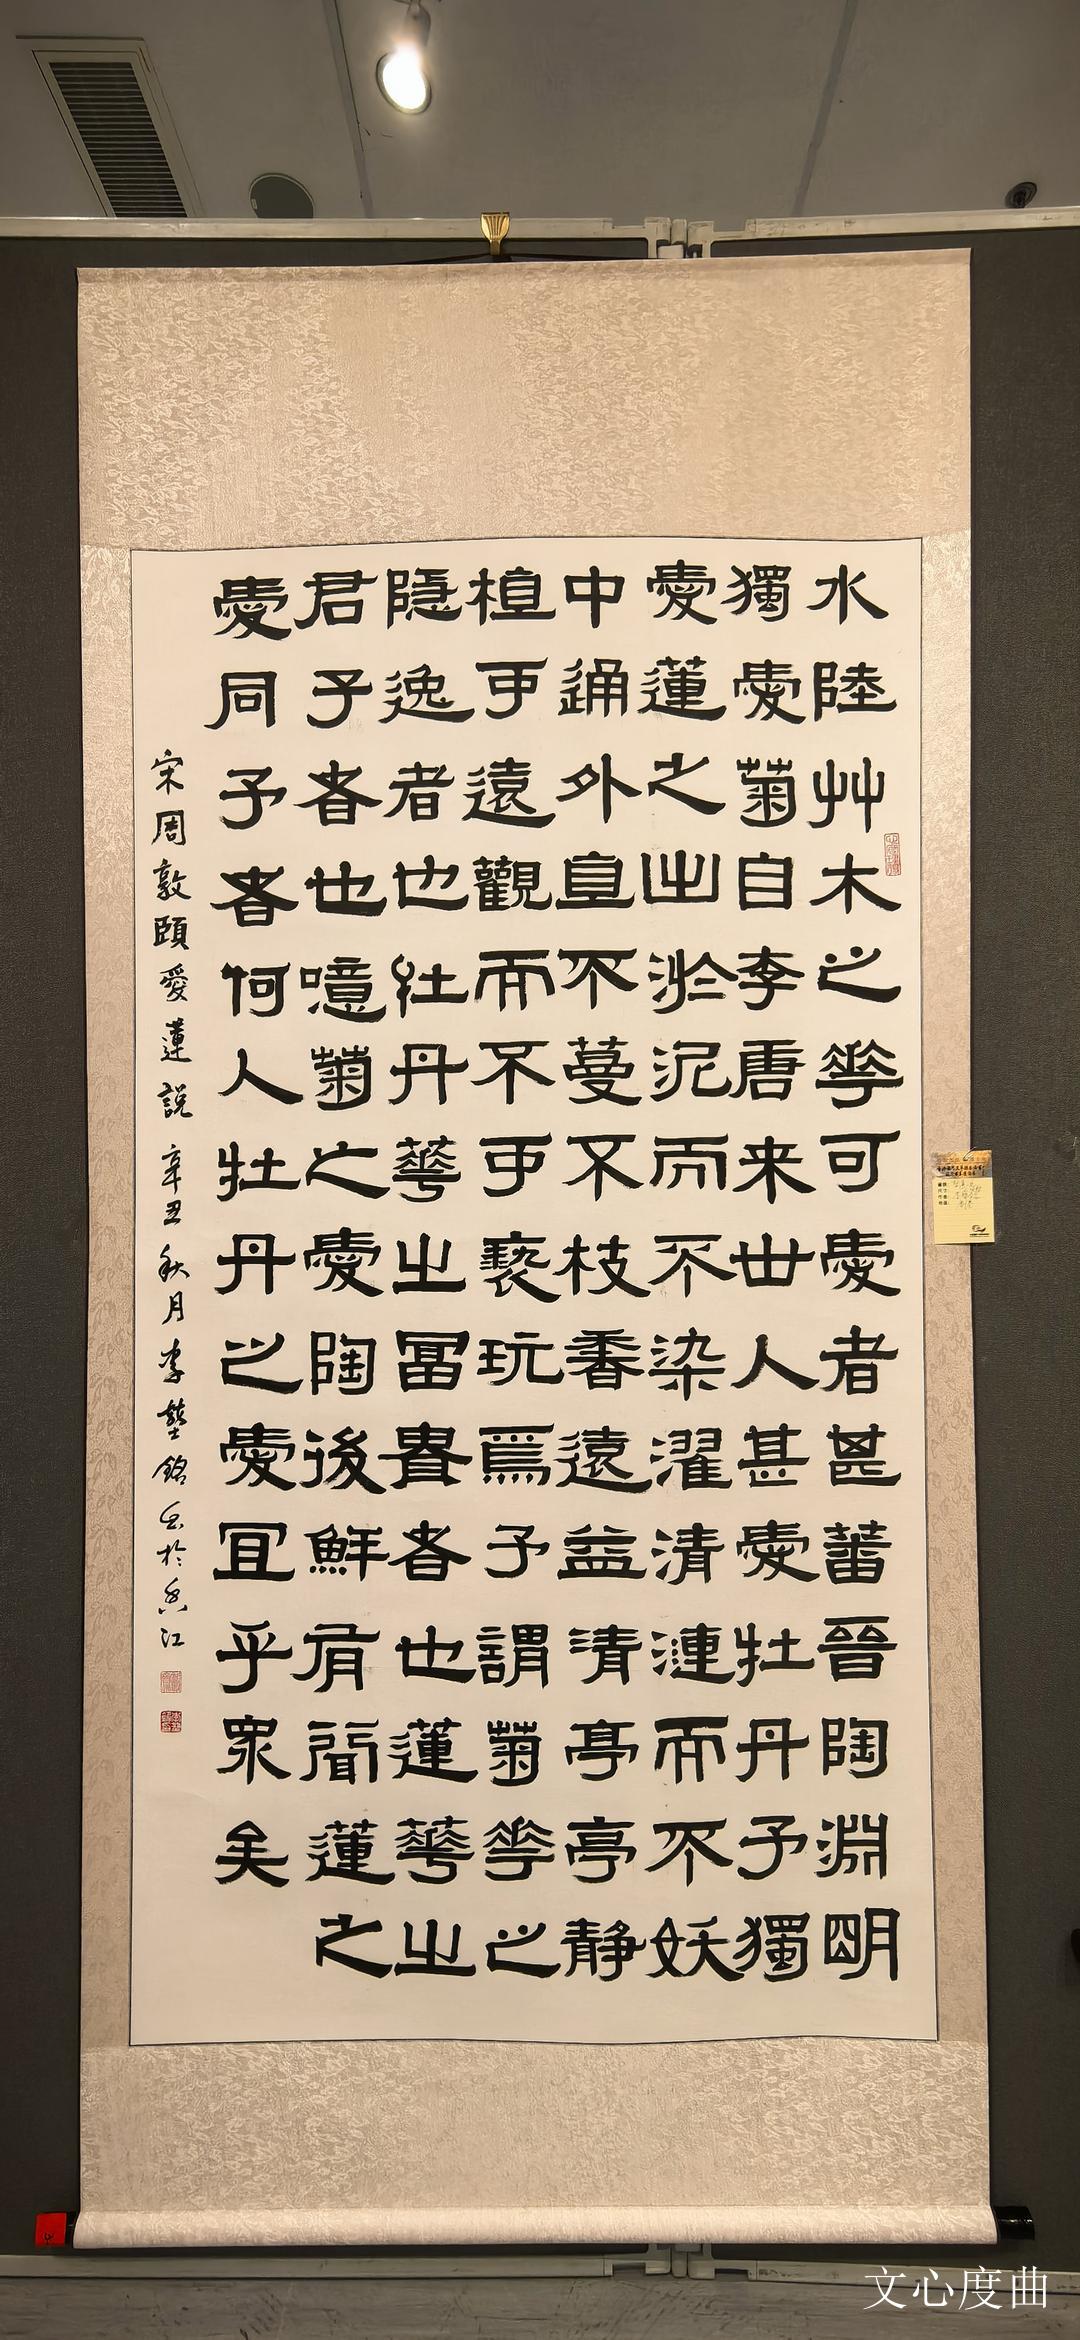 水陸艸木之華可愛者甚蕃晉陶淵明
獨愛菊自李唐来世人甚愛牡丹予獨
愛蓮之出淤泥而不染濯清漣而不妖
中通外直不蔓不枝香遠益清亭亭静
植可遠觀而不可褻玩焉予謂菊華之
隱逸者也牡丹華之富貴者也蓮華之
君子者也噫菊之愛陶後鮮有聞蓮之
愛同予者何人牡丹之愛宜乎眾矣
宋周敦頤愛蓮說辛丑秋月李藝銘書於香江
文心度曲